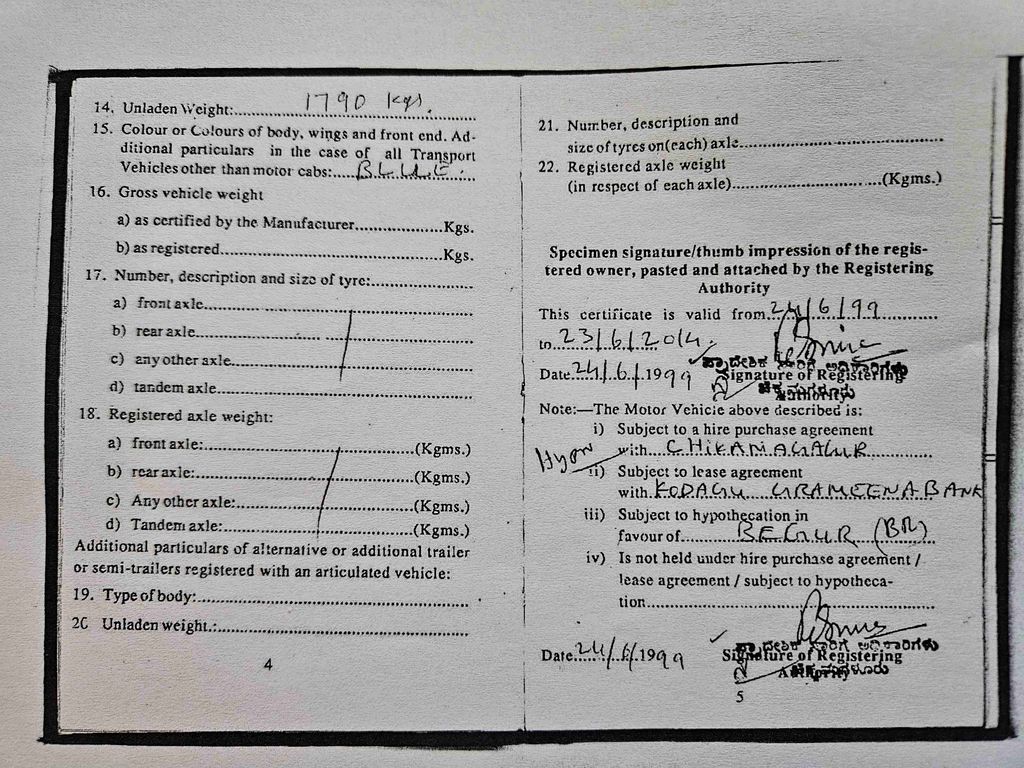 14. Unladen Weight:........1790 Kgs.
15. Colour or Colours of body, wings and front end. Ad-
ditional particulars in the case of all Transport
Vehicles other than motor cabs:....BLUE.
16. Gross vehicle weight
a) as certified by the Manufacturer....................Kgs.
b) as registered....................Kgs.
17. Number, description and size of tyre:....................
a) front axle....................
b) rear axle....................
c) any other axle....................
d) tandem axle....................
18. Registered axle weight:
a) front axle:....................(Kgms.)
b) rear axle:....................(Kgms.)
c) Any other axle:....................(Kgms.)
d) Tandem axle:....................(Kgms.)
Additional particulars of alternative or additional trailer
or semi-trailers registered with an articulated vehicle:
19. Type of body:....................
20 Unladen weight.:....................
4
21. Number, description and
size of tyres on(each) axle....................
22. Registered axle weight
(in respect of each axle)....................(Kgms.)
Specimen signature/thumb impression of the regis-
tered owner, pasted and attached by the Registering
Authority
This certificate is valid from..24/6/99
to..23/6/2014.
Date..24/6/1999
ಪ್ರಾದೇಶಿಕ ಸಾರಿಗೆ ಅಧಿಕಾರಿಗಳು
Signature of Registering
Authority
ಚಿಕ್ಕಮಗಳೂರು
Note:—The Motor Vehicle above described is:
i) Subject to a hire purchase agreement
with...CHIKAMAGALUR
ii) Subject to lease agreement
with.KODAGU GRAMEENA BANK
iii) Subject to hypothecation in
favour of........BEGUR (BR)
iv) Is not held under hire purchase agreement /
lease agreement / subject to hypotheca-
tion....................
Date..24/6/1999
ಪ್ರಾದೇಶಿಕ ಸಾರಿಗೆ ಅಧಿಕಾರಿಗಳು
Signature of Registering
Authority
ಚಿಕ್ಕಮಗಳೂರು
5